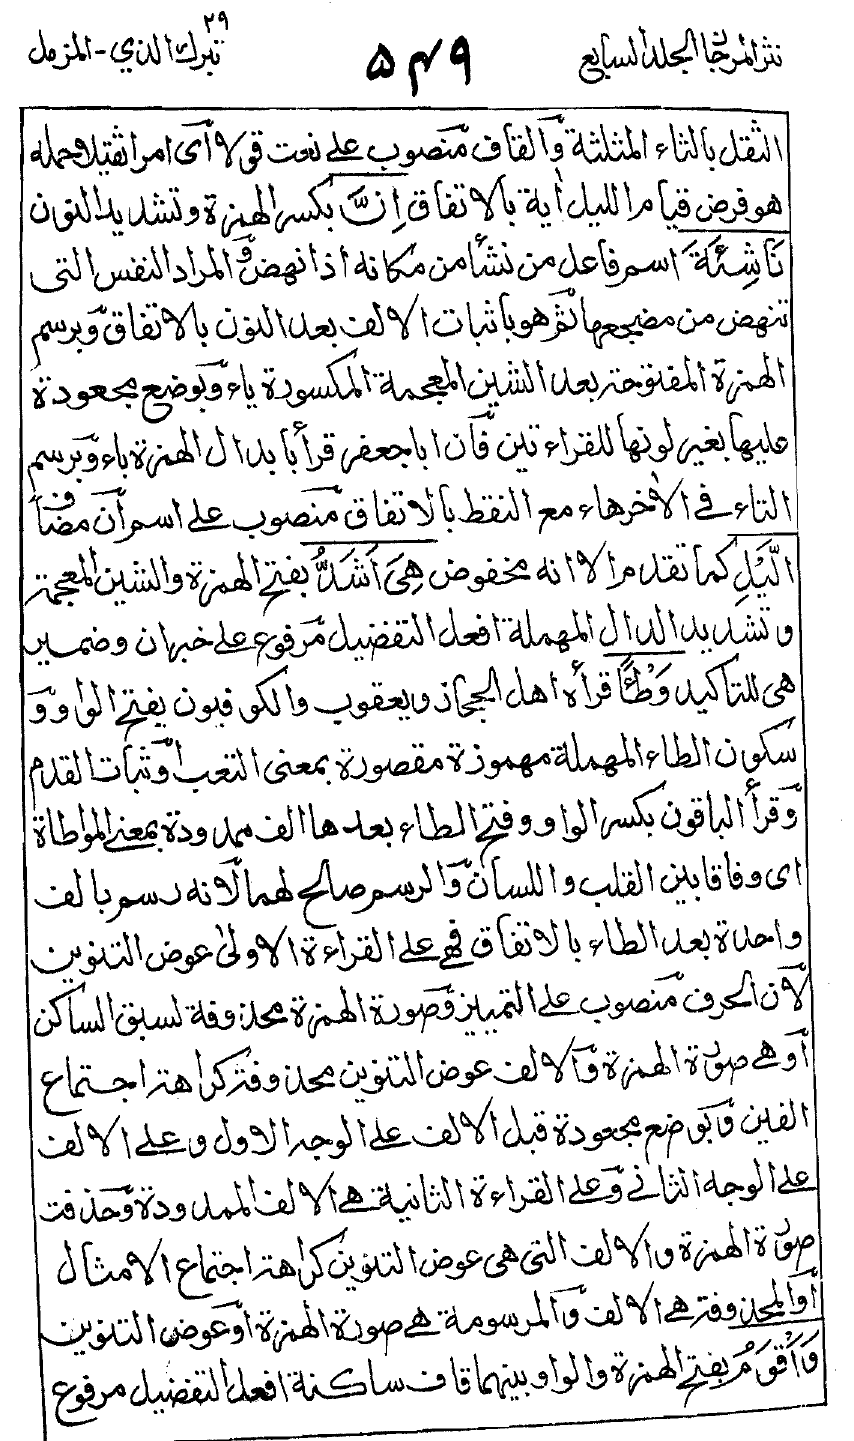 نثر المرجان الجلد السابع ۵۴۹ تبرك الذي - المزمل ۲۹
الثقل بالثاء المثلثة والقاف منصوب على نعت قولا اى امرا ثقيلا وحمله
هو فرض قيام الليل اية بالاتفاق اِنَّ بكسر الهمزة وتشديد النون
نَاشِئَةَ اسم فاعل من نشأ من مكانه اذا نهض والمراد النفس التى
تنهض من مضجعها ثم هو باثبات الالف بعد النون بالاتفاق وبرسم
الهمزة المفتوحة بعد الشين المعجمة المكسورة ياء وبوضع مجعودة
عليها بغير لونها للقراءتين فان ابا جعفر قرأ بابدال الهمزة ياء وبرسم
التاء فى الاخر هاء مع النقط بالاتفاق منصوب على اسم ان مضاف
الَّيْلِ كما تقدم الا انه مخفوض هِىَ اَشَدُّ بفتح الهمزة والشين المعجمة
وتشديد الدال المهملة افعل التفضيل مرفوع على خبر ان وضمير
هى للتاكيد وَطْـًٔا قرأه اهل الحجاز ويعقوب والكوفيون بفتح الواو و
سكون الطاء المهملة مهموزة مقصورة بمعنى التعب او ثبات القدم
وقرأ الباقون بكسر الواو وفتح الطاء بعدها الف ممدودة بمعنى المواطاة
اى وفاقا بين القلب واللسان والرسم صالح لهما لانه رسم بالف
واحدة بعد الطاء بالاتفاق فهى على القراءة الاولى عوض التنوين
لان الحرف منصوب على التمييز وصورة الهمزة محذوفة لسبق الساكن
او هى صورة الهمزة والالف عوض التنوين محذوفة كراهة اجتماع
الفين وبوضع مجعودة قبل الالف على الوجه الاول وعلى الالف
على الوجه الثانى وعلى القراءة الثانية هى الالف الممدودة وحذفت
صورة الهمزة والالف التى هى عوض التنوين كراهة اجتماع الامثال
او المحذوفة هى الالف والمرسومة هى صورة الهمزة او عوض التنوين
وَاَقْوَمُ بفتح الهمزة والواو بينهما قاف ساكنة افعل التفضيل مرفوع